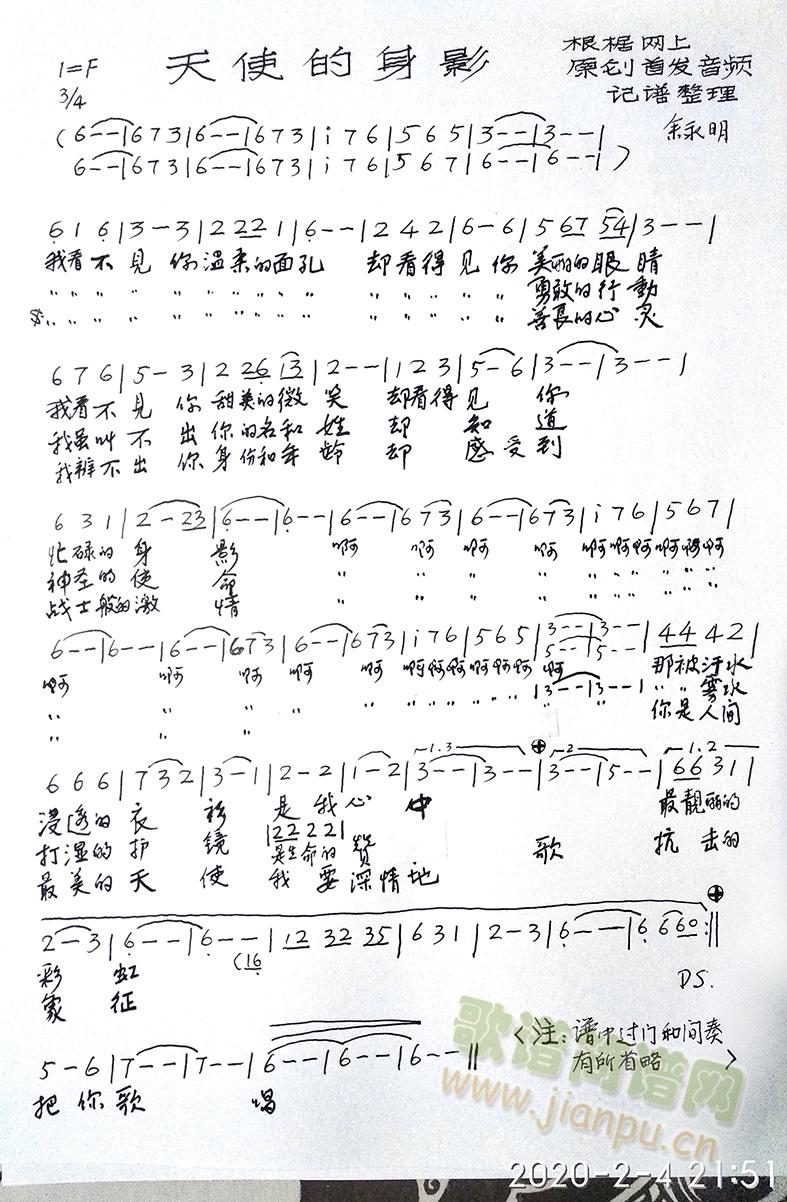 1=F
3/4
天使的身影
根椐网上
原创首发音频
记谱整理
余永明
(6--|673|6--|673|i76|565|3--|3--|
6--|673|6--|673|i76|567|6--|6--|)
616|3-3|2221|6--|242|6-6|56754|3--|
我看不见你温柔的面孔 却看得见你美丽的眼睛
〃 〃 〃 〃 〃 〃 〃 〃 〃 〃 〃 〃 〃 〃 〃 勇敢的行動
〃 〃 〃 〃 〃 〃 〃 〃 〃 〃 〃 〃 〃 〃 〃 善良的心灵
676|5-3|22613|2--|123|5-6|3--|3--|
我看不见你甜美的微笑 却看得见你
我虽叫不出你的名和姓 却知道
我辨不出你身份和年龄 却感受到
631|2-23|6--|6--|6--|673|6--|673|i76|567|
忙碌的身影 啊 啊 啊 啊 啊啊啊啊啊啊
神圣的使命 〃 〃 〃 〃 〃 〃 〃 〃 〃 〃
战士般的激情 〃 〃 〃 〃 〃 〃 〃 〃 〃 〃
6--|6--|6--|673|6--|673|i76|565|3--|3--|4442|
5--|5--
啊 啊 啊 啊 啊 啊啊啊啊啊啊 啊 那被汗水
|3--|3--| 〃 〃 雾水
你是人间
666|732|3-1|2-2|1-2|3--|3--|3--|5--|6631|
1.3 2 1.2
浸透的衣衫是我心中 最靚丽的
|22221|
打湿的护镜 是生命的赞歌 抗击的
最美的天使我要深情地
2-3|6--|6--|123235|631|2-3|6--|6660:||
(16
彩虹
象征
D.S.
5-6|7--|7--|6--|6--|6--||
把你歌唱
<注:谱中过门和间奏
有所省略>
歌谱简谱网
www.jianpu.cn
2020-2-4 21:51